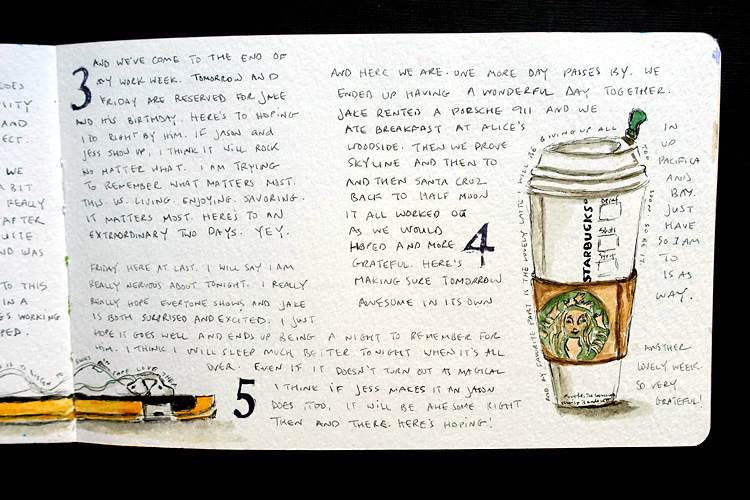 OES
ILITY
AND
ECT.
WE
A BIT
REALLY
AFTER
UITE
ND WAS
TO THIS
IN A
GS WORKING
PED.
3 AND WE'VE COME TO THE END OF
MY WORK WEEK. TOMORROW AND
FRIDAY ARE RESERVED FOR JAKE
AND HIS BIRTHDAY. HERE'S TO HOPING
I DO RIGHT BY HIM. IF JASON AND
JESS SHOW UP, I THINK IT WILL ROCK
NO MATTER WHAT. I AM TRYING
TO REMEMBER WHAT MATTERS MOST.
THIS. US. LIVING. ENJOYING. SAVORING.
IT MATTERS MOST. HERE'S TO AN
EXTRAORDINARY TWO DAYS. YEY.
AND HERE WE ARE. ONE MORE DAY PASSES BY. WE
ENDED UP HAVING A WONDERFUL DAY TOGETHER.
JAKE RENTED A PORSCHE 911 AND WE
ATE BREAKFAST AT ALICE'S
WOODSIDE. THEN WE DROVE
SKYLINE AND THEN TO
AND THEN SANTA CRUZ
BACK TO HALF MOON
IT ALL WORKED OUT
AS WE WOULD
HOPED AND MORE 4
GRATEFUL. HERE'S
MAKING SURE TOMORROW
AWESOME IN ITS OWN
IN
UP
PACIFICA
AND
BAY.
JUST
HAVE
SO I AM
TO
IS AS
WAY.
FRIDAY. HERE AT LAST. I WILL SAY I AM
REALLY NERVOUS ABOUT TONIGHT. I REALLY
REALLY HOPE EVERYONE SHOWS AND JAKE
IS BOTH SURPRISED AND EXCITED. I JUST
HOPE IT GOES WELL AND ENDS UP BEING A NIGHT TO REMEMBER FOR
HIM. I THINK I WILL SLEEP MUCH BETTER TONIGHT WHEN IT'S ALL
OVER. EVEN IF IT DOESN'T TURN OUT AS MAGICAL
5 I THINK IF JESS MAKES IT AN JASON
DOES TOO, IT WILL BE AWESOME RIGHT
THEN AND THERE. HERE'S HOPING!
ANOTHER
LOVELY WEEK.
SO VERY
GRATEFUL!
AND MY FAVORITE PART IS THE LOVELY LATTE I WILL BE GIVING UP ALL TOO SOON. SO BE IT.
STARBUCKS